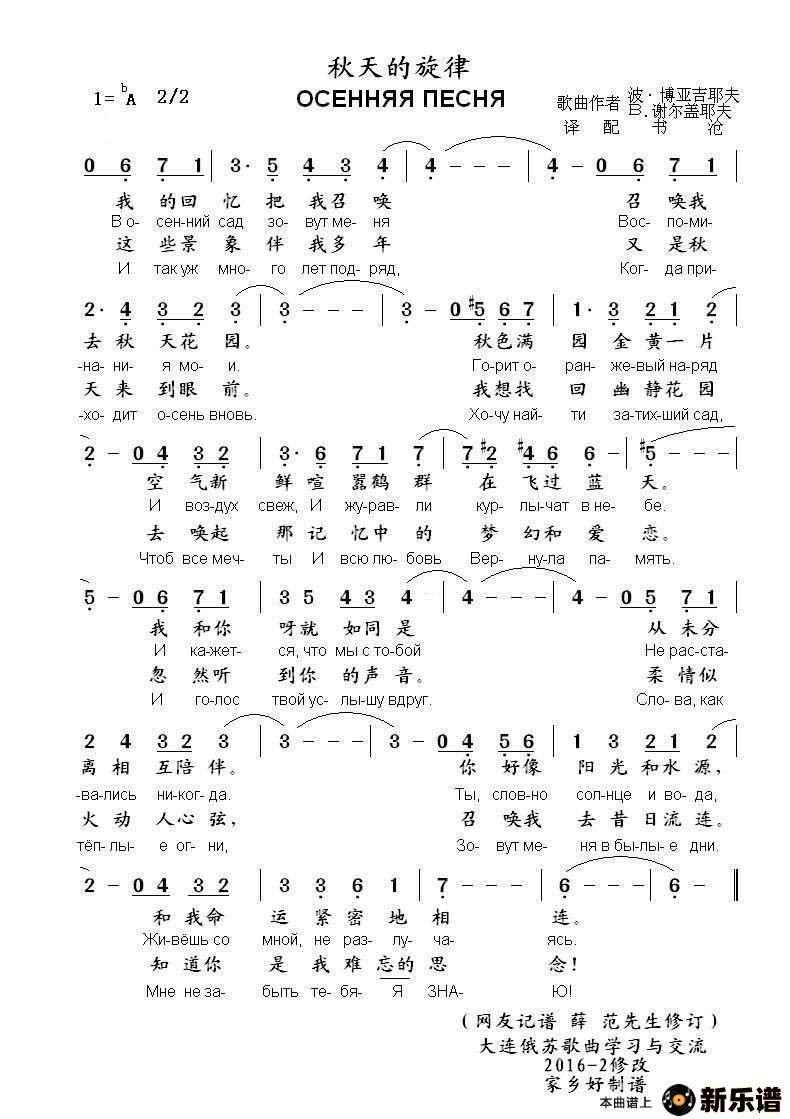 秋天的旋律
1=♭A 2/2
ОСЕННЯЯ ПЕСНЯ
歌曲作者 波·博亚吉耶夫
В.谢尔盖耶夫
译 配 书 沧
0 6 7 1 | 3· 5 4 3 4 | 4 – – – | 4 – 0 6 7 1
我 的回 忆 把 我召 唤 召 唤我
В о- сен-ний сад зо- вут ме- ня Вос- по-ми-
这 些景 象 伴 我多 年 又 是秋
И так уж мно- го лет под- ряд, Ког- да при-
2· 4 3 2 3 | 3 – – – | 3 – 0 #5 6 7 | 1· 3 2 1 2
去 秋 天花 园。 秋色满 园 金 黄一 片
-на- ни- я мо- и. Го-рит о- ран- же-вый на-ряд
天 来 到眼 前。 我想找 回 幽 静花 园
-хо- дит о-сень вновь. Хо-чу най- ти за-тих-ший сад,
2 – 0 4 3 2 | 3· 6 7 1 7 | 7 #2 #4 6 6 – | #5
空 气新 鲜 喧 嚣鹤 群 在 飞过 蓝 天。
И воз-дух свеж, И жу-рав- ли кур- лы-чат в не- бе.
去 唤起 那 记 忆中 的 梦 幻和 爱 恋。
Чтоб все меч- ты И всю лю- бовь Вер- ну-ла па- мять.
5 – 0 6 7 1 | 3 5 4 3 4 | 4 – – – | 4 – 0 5 7 1
我 和你 呀就 如同 是 从 未分
И ка-жет- ся, что мы с то-бой Не рас-ста-
忽 然听 到你 的声 音。 柔 情似
И го-лос твой ус- лы-шу вдруг. Сло- ва, как
2 4 3 2 3 | 3 – – – | 3 – 0 4 5 6 | 1 3 2 1 2
离 相 互陪 伴。 你 好像 阳 光 和水 源,
-ва-лись ни-ког- да. Ты, слов-но сол-нце и во- да,
火 动 人心 弦, 召 唤我 去 昔 日流 连。
тёп-лы- е ог- ни, Зо- вут ме- ня в бы-лы- е дни.
2 – 0 4 3 2 | 3 3 6 1 | 7 – – – | 6 – 6 –
和 我命 运 紧 密 地 相 连。
Жи-вёшь со мной, не раз- лу- ча- ясь.
知 道你 是 我 难 忘的 思 念!
Мне не за- быть те- бя- Я ЗНА- Ю!
(网友记谱 薛 范先生修订)
大连俄苏歌曲学习与交流
2016-2修改
家乡好制谱
本曲谱上 新乐谱